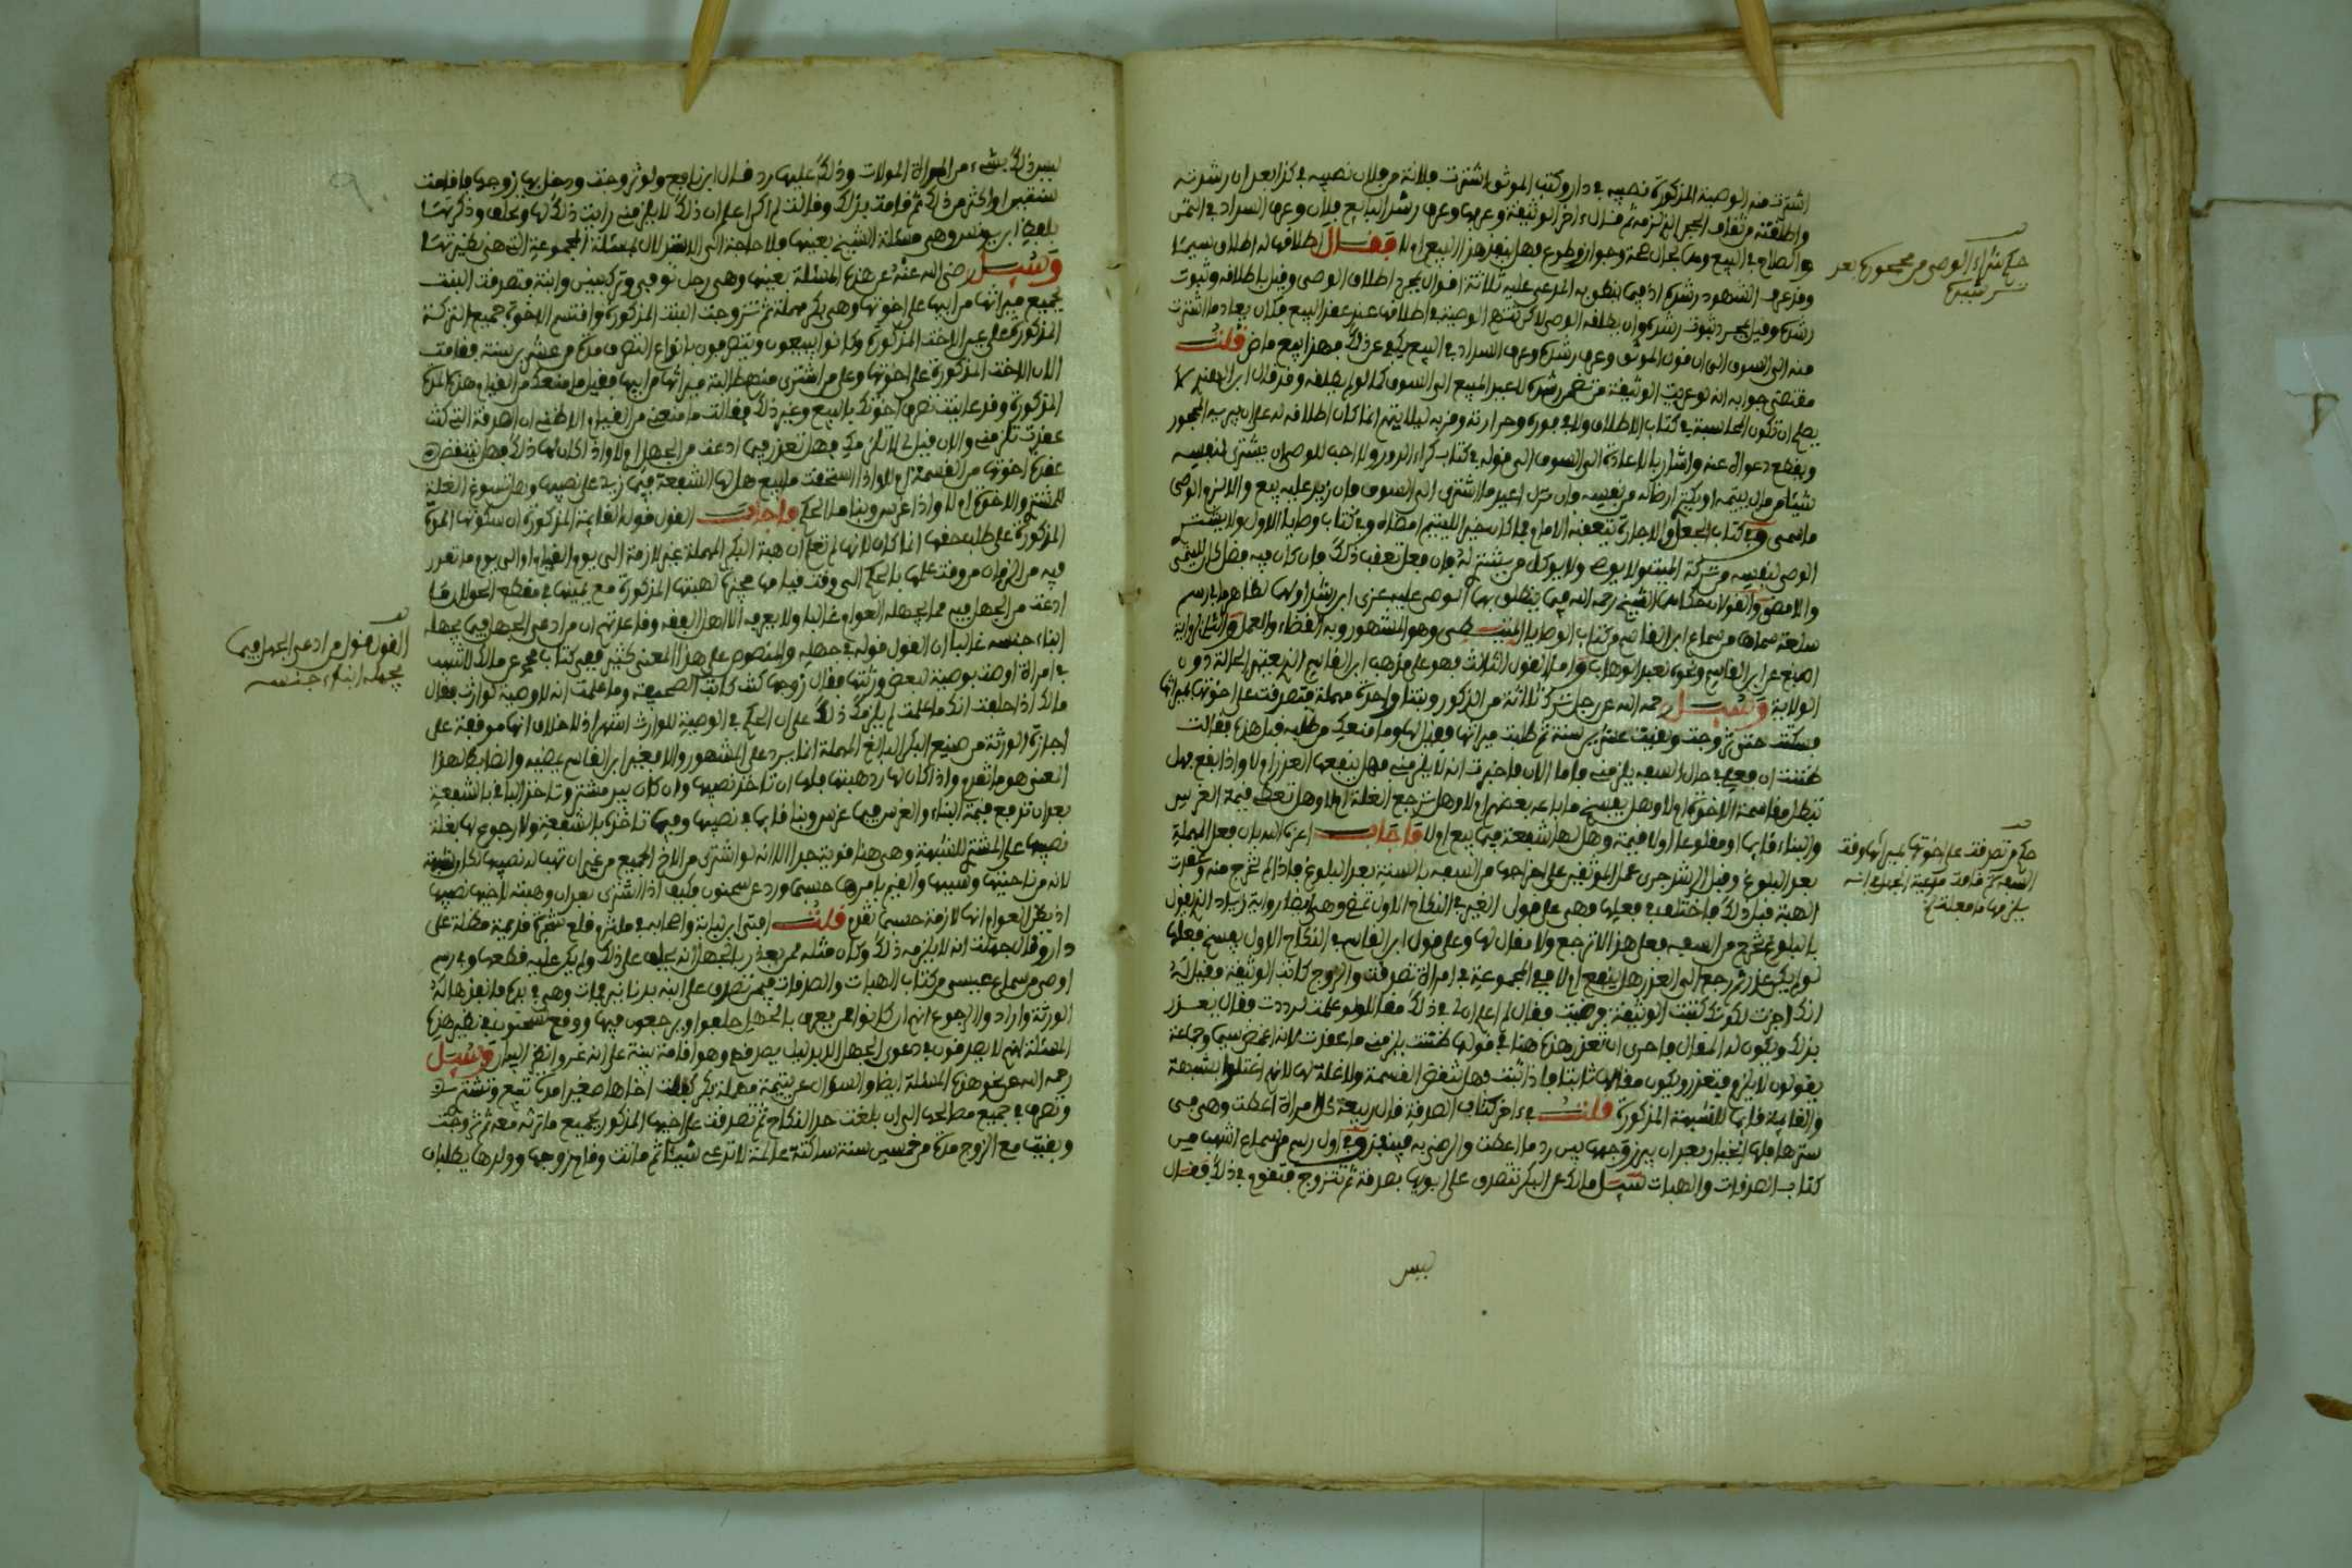 اشترت منه الوصية المذكورة نصيبه في دار وكتب الموثق اشترت فلانة من فلان نصيبه في كذا بعد ان رشدته
واطلقته من ثقاف الحجر الذي لزمه ثم قال اخر الوثيقة وعرفها وعرف رشد البايع فلان وعرف السداد في الثمن
والصلاح في البيع وهما بحال صحة وجواز وطوع فهل ينفذ هذا البيع ام لا فقال اطلاقها له اطلاق
وقد عرف الشهود رشده اذ فيما ينطق به المدعى عليه ثلاثة اقوال بمجرد اطلاق الوصي وقيل باطلاقه وثبوت
رشده وقيل بمجرد ثبوت رشده وان يطلقه الوصي لاكن تتهم الوصية في اطلاقها عند عقد البيع فكان يعاد ما اشترت
منه الى السوق الى ان قول الموثق وعرف رشده وعرف السداد في البيع يكفي عن ذلك فهذا بيع ماض قلت
مقتضى جوابه انه لو عريت الوثيقة من تضمن رشده للعبد المبيع الى السوق كما لو لم يطلقه وقد قال ابن
يصلح ان تكون المحاسبة في كتاب الاطلاق ولا في فوره وحرارته وقربه ليلا يتهم انما كان اطلاقه له على ان يبريه المحجور
ويقطع دعواه عنه واشار بالاعادة الى السوق الى قوله في كتاب كراء الدور ولا احب للوصي ان يشتري لنفسه
شيئا من مال يتيمه او يكتري ارضا له من نفسه وان نزل اعيد ما اشترى الى السوق فان زيد عليه بيع والا لزم الوصي
ما سمى وفي كتاب الجعل والاجارة يتعقبه الامام فما كان خيرا لليتيم امضاه وفي كتاب وصايا الاول ولا يشتري
الوصي لنفسه من تركة الميت ولا يوصي ولا يوكل من يشتري له وان فعل تعقب ذلك فان كان فيه فضل كان لليتيم
والا مضى والقولان حكاهما الشيخ رحمه الله فيما ينطلق بها الوصي عليه عزى ابن رشد اولهما لظاهر ما في رسم
سلعة سماها من سماع ابن القاسم من كتاب الوصايا وهو المشهور وبه القضاء والعمل والثاني لرواية
اصبغ عن ابن القاسم ونحوه لعبد الوهاب واما القول الثالث فهو على مذهب ابن القاسم الذي يعتبر الحالة دون
الولاية وسئل رحمه الله عن رجل ترك ثلاثة من الذكور وبنتا واحدة مهملة فتصدقت على اخوتها بميراثها
فسكتت حتى تزوجت وبقيت عشرين سنة ثم طلبت ميراثها فقيل لها وما منعك من طلبه قبل هذا فقالت
ظننت ان فعلي في حال السفه يلزمني واما الان فاخبرت انه لا يلزمني فهل ينفعها العذر ام لا واذا نفع فهل
تبطل مقاسمة الاخوة ام لا وهل يفسخ ما باعه بعضهم ام لا وهل ترجع الغلة ام لا وهل تعطى قيمة الغرس
والبناء قايما او مقلوعا او لا قيمة وهل لها شفعة فيما بيع ام لا فاجاب اعزه الله بان فعل المهملة
بعد البلوغ وقبل الرشد جرى عمل الموثقين على اخراجها من السفه بالسنة بعد البلوغ فاذا لم تخرج منه وعقدت
الهبة قبل ذلك فاختلف في فعلها فهي على قول الغير في النكاح الاول تمضي وهي ايضا رواية زياد الذي يقول
بالبلوغ تخرج من السفه فعل هذا لا ترجع ولا مقال لها وعلى قول ابن القاسم في النكاح الاول يفسخ فعلها
لو لم يكن عذر ترجع الى العذر هل ينفع ام لا ففي المجموعة في امراة تصدقت والزوج كاتب الوثيقة فقيل له
انك اجزت لكونك كتبت الوثيقة ورضيت فقال لم اعلم ان لي ذلك مقالا ولو علمت لرددت فقال يعذر
بذلك ويكون له المقال فاحرى ان تعذر هذه هنا في قولها ظننت يلزمني ما عقدت لانه اغمض سيما وجماعة
يقولون لا يلزم فتعذر ويكون مقالها ثابتا فاذا ثبت فهل تنقض القسمة ولا غلة لها لانهم اغتلوا بشبهة
والقيمة قايما للشبهة المذكورة قلت في اخر كتاب الصدقة قال ربيعة كل امراة اعطت وهي في
سترها فلها الخيار بعد ان يبرز وجهها بين رد ما اعطت والرضى به فينفذ وفي اول رسم من سماع اشهب من
كتاب الصدقات والهبات سئل مالك عن البكر تتصدق على ابويها بصدقة ثم تتزوج فتقوم في ذلك فقال
ليس
حكم شراء الوصي من محجوره بعد
ترشيده
حكم من تصدقت على اخوتها بميراثها وقت
السفه ثم قامت مدعية الجهل في انه
يلزمها ما فعلته
ليس ذلك بشيء من المراة المولات وذلك عليها رد قال ابن نافع ولو تزوجت ودخل بها زوجها فاقامت
سنتين او اكثر من ذلك ثم قامت بذلك وقالت لم اكن اعلم ان ذلك لا يلزمني رايت ذلك لها وتحلف وذكرتها
بلفظ ابن يونس وهي مسئلة الشيخ بعينها فلا حاجة الى الاستدلال بمسئلة المجموعة التي هي نظيرتها
وسئل رضي الله عنه عن هذه المسئلة بعينها وهي رجل توفي وترك بنين وابنة فتصدقت البنت
بجميع ميراثها من ابيها على اخوتها وهي بكر مهملة ثم تزوجت البنت المذكورة واقتسم الاخوة جميع التركة
المذكورة على غير الاخت المذكورة وكانوا يبيعون ويتصرفون بانواع التصرف مدة من عشرين سنة فقامت
الان الاخت المذكورة على اخوتها وعلى من اشترى منهم طالبة ميراثها من ابيها فقيل ما منعك من القيام هذه المدة
المذكورة وقد عاينت تصرف اخوتك بالبيع وغير ذلك فقالت ما منعني من القيام الا ظني ان الصدقة التي كنت
عقدت تلزمني والان قيل لي لا تلزمك فهل تعذر فيما ادعت من الجهل ام لا واذا كان لها ذلك فهل ينتقض
عقدة اخوتها من القسمة ام لا واذا استحقت ما بيع هل لها الشفعة فيما زيد على نصيبها وهل تسوغ الغلة
للمشتري والاخوة ام لا واذا غرس وبنا ما الحكم فاجاب القول قول القايمة المذكورة ان سكوتها المدة
المذكورة على طلب حقها انما كان لانها لم تعلم ان هبة البكر المهملة غير لازمة الى يوم القيام او الى يوم ما تقدر
فيه من الزمان من وقت علمها بالحكم الى وقت قيامها هبتها المذكورة مع يمينها في مقطع الحق لان ما
ادعت من الجهل فيه مما يجهله العوام غالبا ولا يعرفه الا اهل الفقه وقاعدتهم ان من ادعى الجهل فيما يجهله
ابناء جنسه غالبا ان القول قوله في جهله والمنصوص على هذا المعنى كثير ففي كتاب محمد عن مالك لاشهب
في امراة اوصت بوصية لبعض ورثتها فقال زوجها كنت كاتب الصحيفة وما علمت انه لا وصية لوارث فقال
مالك اذا حلفت انك ما علمت لم يلزمك ذلك على ان الحكم في الوصية للوارث اشهر اذ لا خلاف انها موقفة على
اجازة الورثة من صنيع البكر البالغ المهملة انما يرد على المشهور والا فغير ابن القاسم يمضيه والضابط لهذا
المعنى هو ما تقدم واذا كان لها رد هبتها فلها ان تاخذ نصيبها وان كان بيد مشتر وتاخذ الباقي بالشفعة
بعد ان تدفع قيمة البناء والغرس فيما غرس وبنا قايما في نصيبها وفيما تاخذه بالشفعة ولا رجوع لها بغلة
نصيبها على المشتري للشبهة وهي هنا قوية جدا الا انه لو اشترى من الاخ الجميع من غير ان تهب له نصيبها لكان شبهة
لانه من ناحيتها وسببها والقيم بامرها حسبما ورد عن سحنون فكيف اذا اشترى بعد ان وهبته لاخيها نصيبها
اذ يظن العوام انها لازمة حسبما تقدم قلت افتى ابن لبابة واصحابه في مشتر قلع شجرة قديمة مظلة على
دار وقال جهلت انه لا يلزمه ذلك وكان مثله ممن يعذر بالجهل انه يحلف على ذلك ولم يكن عليه قطعها وفي رسم
اوصى من سماع عيسى من كتاب الهبات والصدقات فيمن تصدق على ابنه بدنانير فمات وهي في يده فانفذها له
الورثة وارادوا الرجوع انهم ان كانوا ممن يعرف بالجهل حلفوا ويرجعون فيها ووقع لسحنون في نظير هذه
المسئلة انهم لا يصدقون في دعوى الجهل الا بدليل يصدقهم وهو اقامة بينة على انه غر وانظر البيان وسئل
رحمه الله عن نحو هذه المسئلة ايضا والسؤال عن يتيمة مهملة بكر كفلت اخاها صغيرا مدة تبيع وتشتري
وتصرف في جميع مصالحها الى ان بلغت حد النكاح ثم تصدقت على اخيها المذكور بجميع ما ترثه معه ثم تزوجت
وبقيت مع الزوج مدة من خمسين سنة ساكتة عالمة لا تدعي شيئا ثم ماتت وقام زوجها وولدها يطلبان
القول قول من ادعى الجهل فيما
يجهله ابناء جنسه